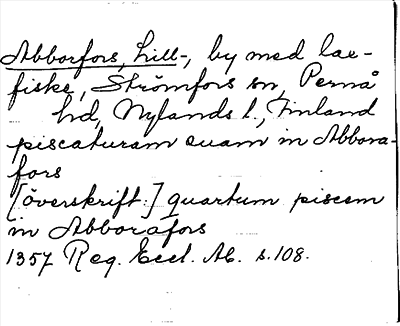 Abborfors, Lill-, by med lax-
fiske, Strömfors sn, Pernå
hd, Nylands l., Finland
piscaturam suam in Abbora-
fors
[överskrift:] quartum piscem
in Abborafors
1357 Reg. Eccl. Ab. s. 108.